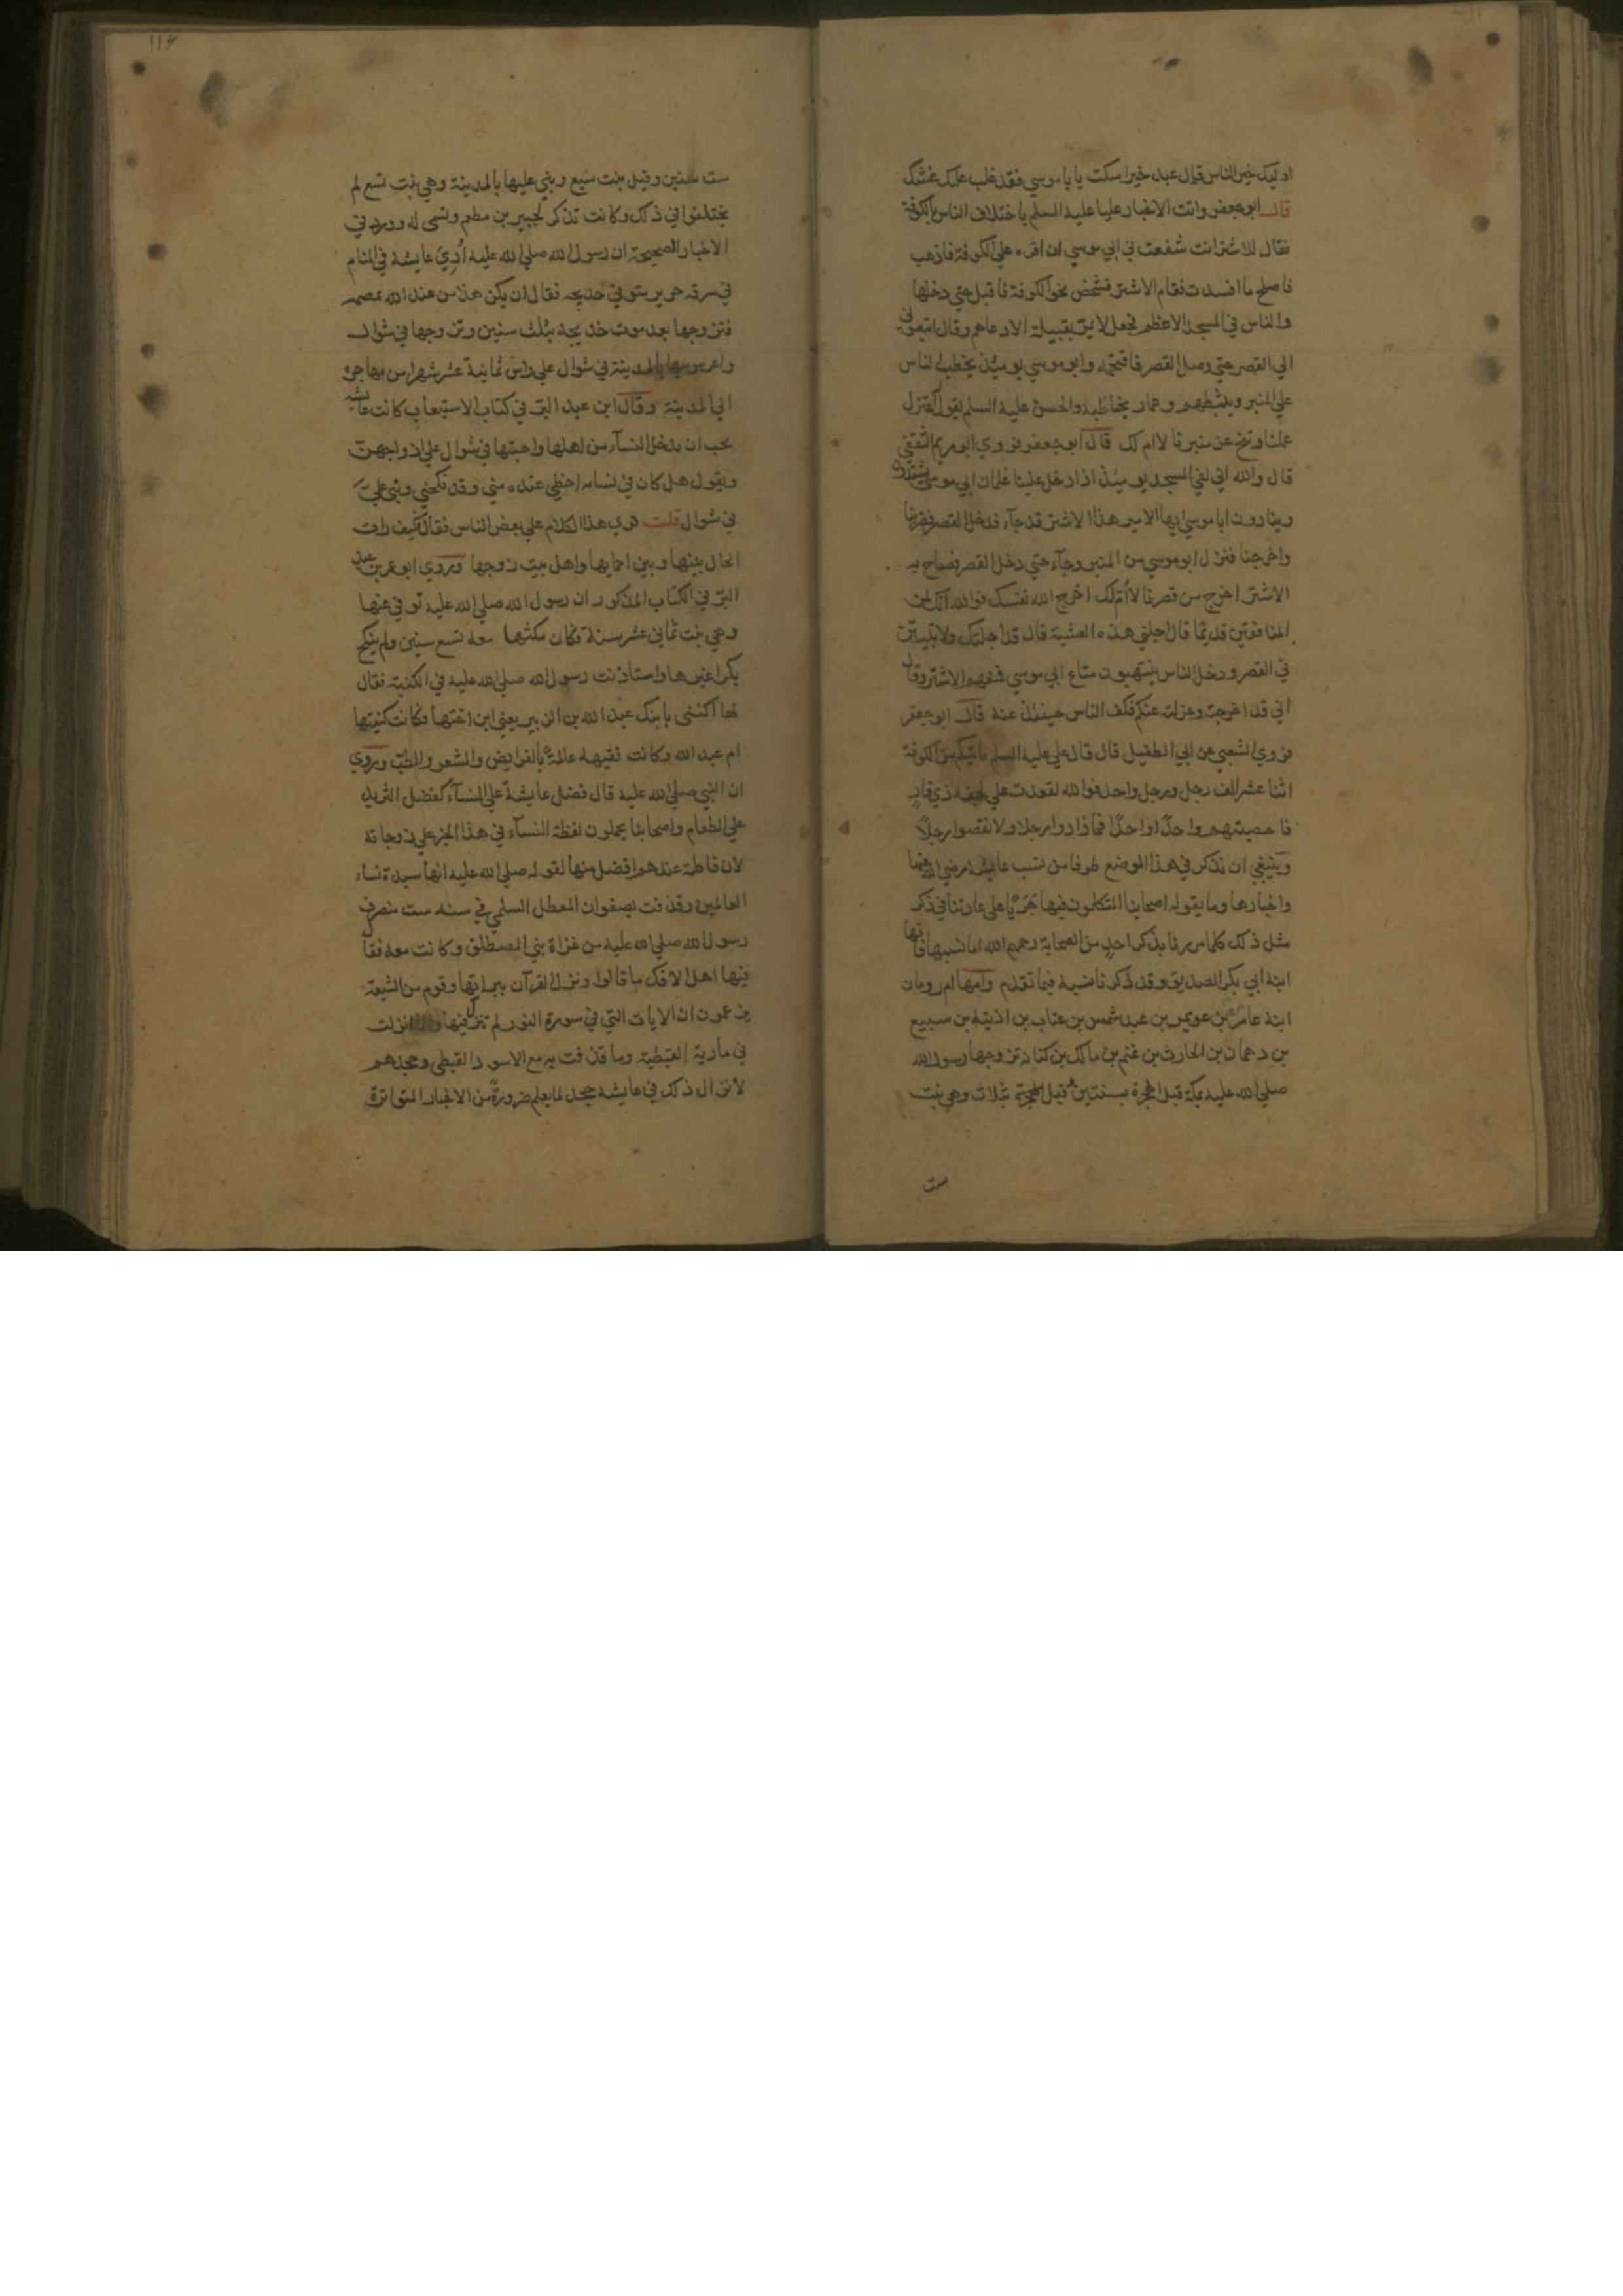 اوليك خير الناس قال عبد خير اسكت يا با موسي فقد غلب عليك غشك
قال ابو جعفر واتت الاخبار عليا عليه السلم باختلاف الناس بالكوفة
فقال للاشتر انت شفعت في ابي موسي ان اقره علي الكوفة فاذهب
فاصلح ما افسدت فقام الاشتر فشخص نحو الكوفة فاقبل حتي دخلها
والناس في المسجد الاعظم فجعل لا يمر بقبيلة الا دعاهم وقال اتبعوني
الي القصر حتي وصل القصر فاقتحمه وابو موسي يوميذ يخطب الناس
علي المنبر ويثبطهم وعمار يخاطبه والحسن عليه السلم يقول اعتزل
عملنا وتنح عن منبرنا لا ام لك قال ابو جعفر فروي ابو مريم الثقفي
قال والله اني لفي المسجد يوميذ اذ دخل علينا غلمان ابي موسي يشتدون
وينادون ابا موسي ايها الامير هذا الاشتر قد جآء فدخل القصر فضربنا
واخرجنا فنزل ابو موسي من المنبر وجآء حتي دخل القصر فصاح به
الاشتر اخرج من قصرنا لا ام لك اخرج الله نفسك فوالله انك لمن
المنافقين قديما قال اجلني هذه العشية قال قد اجلتك ولا تبيتن
في القصر ودخل الناس ينتهبون متاع ابي موسي فمنعهم الاشتر وقال
اني قد اخرجته وعزلته عنكم فكف الناس حينئذ عنه قال ابو جعفر
فروي الشعبي عن ابي الطفيل قال قال علي عليه السلم ياتيكم من الكوفة
اثنا عشر الف رجل ورجل واحد فوالله لقعدت علي نجفه ذي قار
فاحصيتهم واحدًا واحدًا فما زادوا رجلا ولا نقصوا رجلًا
وينبغي ان نذكر في هذا الموضع طرفا من نسب عايشه رضي الله عنها
واخبارها وما يقوله اصحابنا المتكلمون فيها جريًا علي عادتنا في ذكر
مثل ذلك كلما مررنا بذكر احدٍ من الصحابة رحمهم الله اما نسبها فانها
ابنة ابي بكر الصديق وقد ذكرنا نسبه فيما تقدم وامها ام رومان
ابنة عامر بن عويمر بن عبد شمس بن عتاب بن اذينة بن سبيع
بن دهمان بن الحارث بن غنم بن مالك بن كنانه تزوجها رسول الله
صلي الله عليه بمكة قبل الهجرة بسنتين قبل الهجرة بثلاث وهي بنت
ست
ست سنين وقيل بنت سبع وبني عليها بالمدينة وهي بنت تسع لم
يختلفوا في ذلك وكانت تذكر لجبير بن مطعم وتسمي له وورد في
الاخبار الصحيحة ان رسول الله صلي الله عليه أُري عايشة في المنام
في سرقه حرير متوفي خديجه فقال ان يكن هذا من عند الله يمضه
فتزوجها بعد موت خديجة بثلث سنين وتزوجها في شوال
واعرس بها بالمدينة في شوال علي راس ثمانية عشر شهرا من مهاجره
الي المدينة وقال ابن عبد البر في كتاب الاستيعاب كانت عائشه
تحب ان يدخل النسآء من اهلها واحبتها في شوال علي ازواجهن
وتقول هل كان في نسايه احظي عنده مني وقد نكحني وبني علي
في شوال قلت قري هذا الكلام علي بعض الناس فقال كيف رات
الحال بينها وبين احمايها واهل بيت زوجها وروي ابو عمر بن عبد
البر في الكتاب المذكور ان رسول الله صلي الله عليه توفي عنها
وهي بنت ثماني عشر سنة فكان مكثها معه تسع سنين ولم ينكح
بكرا غيرها واستاذنت رسول الله صلي الله عليه في الكنية فقال
لها اكتني بابنك عبد الله بن الزبير يعني ابن اختها فكانت كنيتها
ام عبد الله وكانت فقيهه عالمةً بالفرايض والشعر والطب وروي
ان النبي صلي الله عليه قال فضل عايشة علي النسآء كفضل الثريد
علي الطعام واصحابنا يحملون لفظة النسآء في هذا الخبر علي زوجاته
لان فاطمة عندهم افضل منها لقوله صلي الله عليه انها سيدة نساء
العالمين وقذفت بصفوان المعطل السلمي في سنه ست منصرف
رسول الله صلي الله عليه من غزاة بني المصطلق وكانت معه فقال
فيها اهل الافك ما قالوا ونزل القرآن ببراتها وقوم من الشيعة
يزعمون ان الايات التي في سورة النور لم تنزل فيها انزلت
في مارية القبطية وما قذفت به مع الاسود القبطي وجحدهم
لانزال ذلك في عايشه جحد لما يعلم ضرورةً من الاخبار المتواترة